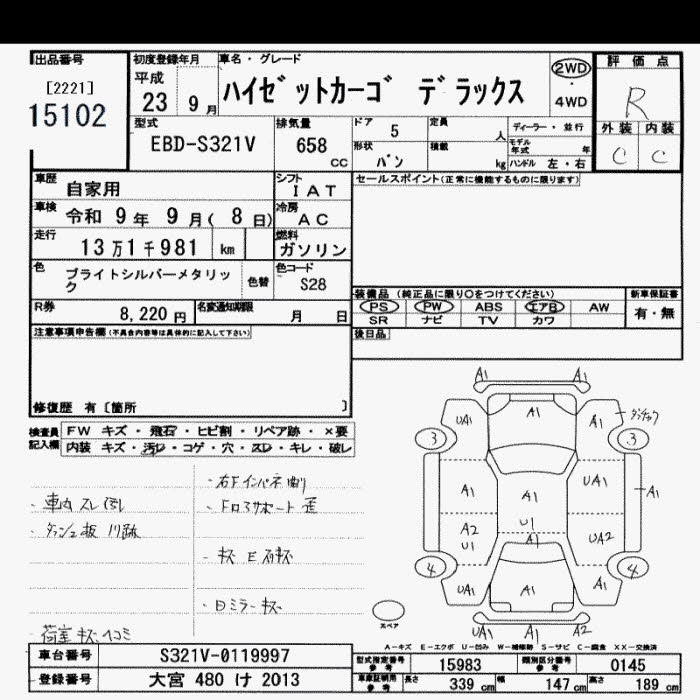 出品番号
[2221]
15102
初度登録年月
平成
23 9月
車名・グレード
ハイゼットカーゴ デラックス
2WD
・
4WD
評価点
R
外装 内装
C C
型式
EBD-S321V
排気量
658 cc
ドア 5
定員 人
ディーラー・並行
形状
バン
積載 kg
モデル年式 年
ハンドル 左・右
車歴 自家用
シフト IAT
セールスポイント(正常に機能するものに限ります)
車検 令和 9年 9月( 8日)
冷房 AC
走行 13万1千981 km
燃料 ガソリン
色 ブライトシルバーメタリック
色替
色コード S28
R券 8,220円
名変通知期限 月 日
装備品 (純正品に限り○をつけてください)
新車保証書
PS PW ABS エアB AW
有・無
SR ナビ TV カワ
注意事項申告欄(不具合内容等は具体的に記入して下さい)
後日品
修復歴 有〔箇所 〕
検査員記入欄
FW キズ・飛石・ヒビ割・リペア跡・×要
内装 キズ・汚レ・コゲ・穴・スレ・キレ・破レ
・右Fインパネ
・車内 スレ
・Fロアサポート 歪
・キズ E
・日ミラーキズ
荷室 キズ ヘコミ
A1 A1
UA1 A1 A1
3 3
A1 A1 UA1 A1
A2 U1 U1 A1 UA2
4 4
UA1 A1 A1
スペア
UA1 A1 A2
A-キズ E-エクボ U-凹み W-補修跡 S-サビ C-腐食 XX-交換済
車台番号 S321V-0119997
型式指定番号 参考 15983
類別区分番号 参考 0145
登録番号 大宮 480 け 2013
車庫証明用 参考 長さ 339 cm 幅 147 cm 高さ 189 cm